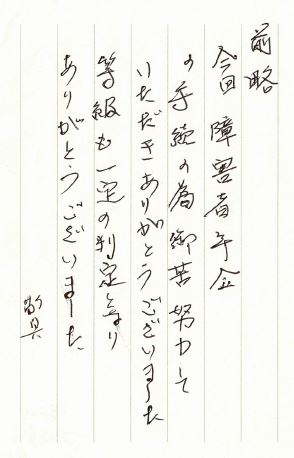 前略
今回障害者年金
の手続の為御苦努力して
いただきありがとうございました
等級も一定の判定となり
ありがとうございました
敬具